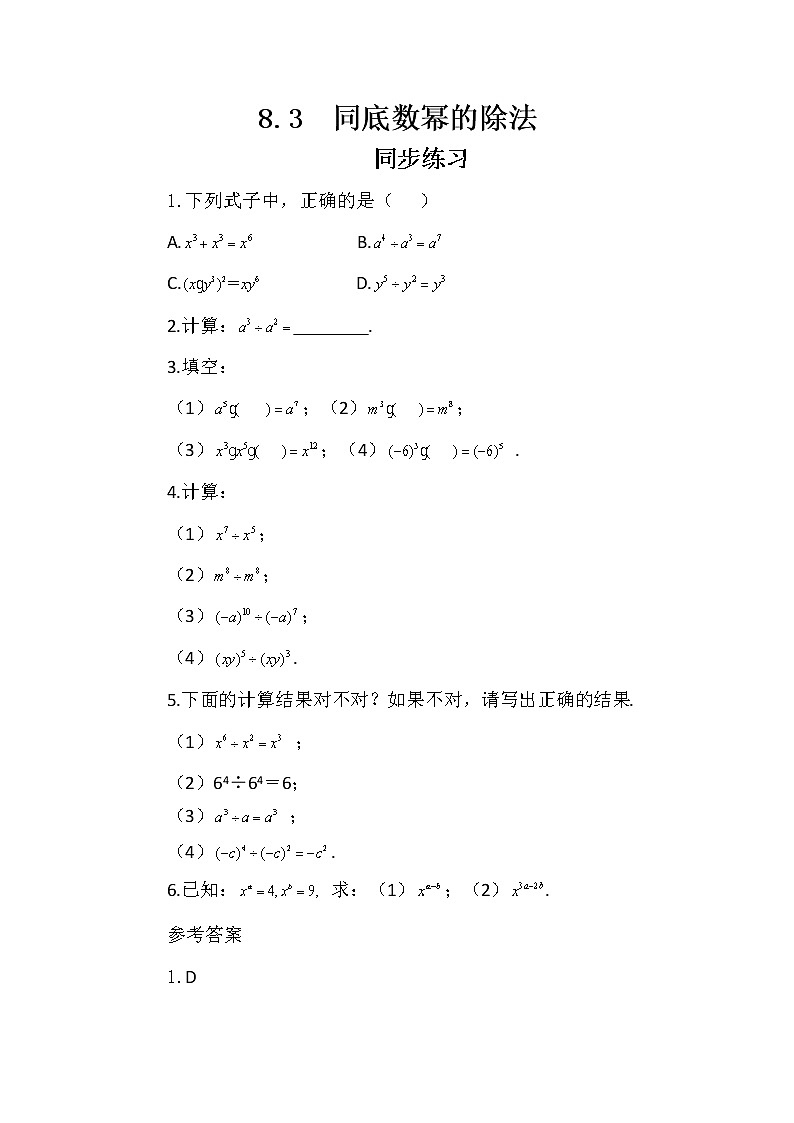 8.3 同底数幂的除法
同步练习
1.下列式子中，正确的是（ ）
A. x³ + x³ = x⁶ B. a⁴ ÷ a³ = a⁷
C. (xgy³)²=xy⁶ D. y⁵ ÷ y² = y³
2.计算：a³ ÷ a² = ________.
3.填空：
（1）a⁵g( ) = a⁷；（2）m³g( ) = m⁸；
（3）x³gx⁵g( ) = x¹²；（4）(−6)³g( ) = (−6)⁵ .
4.计算：
（1）x⁷ ÷ x⁵；
（2）m⁸ ÷ m⁸；
（3）(−a)¹⁰ ÷ (−a)⁷；
（4）(xy)⁵ ÷ (xy)³.
5.下面的计算结果对不对？如果不对，请写出正确的结果.
（1）x⁶ ÷ x² = x³ ；
（2）6⁴÷6⁴＝6；
（3）a³ ÷ a = a³ ；
（4）(−c)⁴ ÷ (−c)² = −c².
6.已知：xᵃ = 4, xᵇ = 9, 求：（1）xᵃ⁻ᵇ；（2）x³ᵃ⁻²ᵇ.
参考答案
1. D